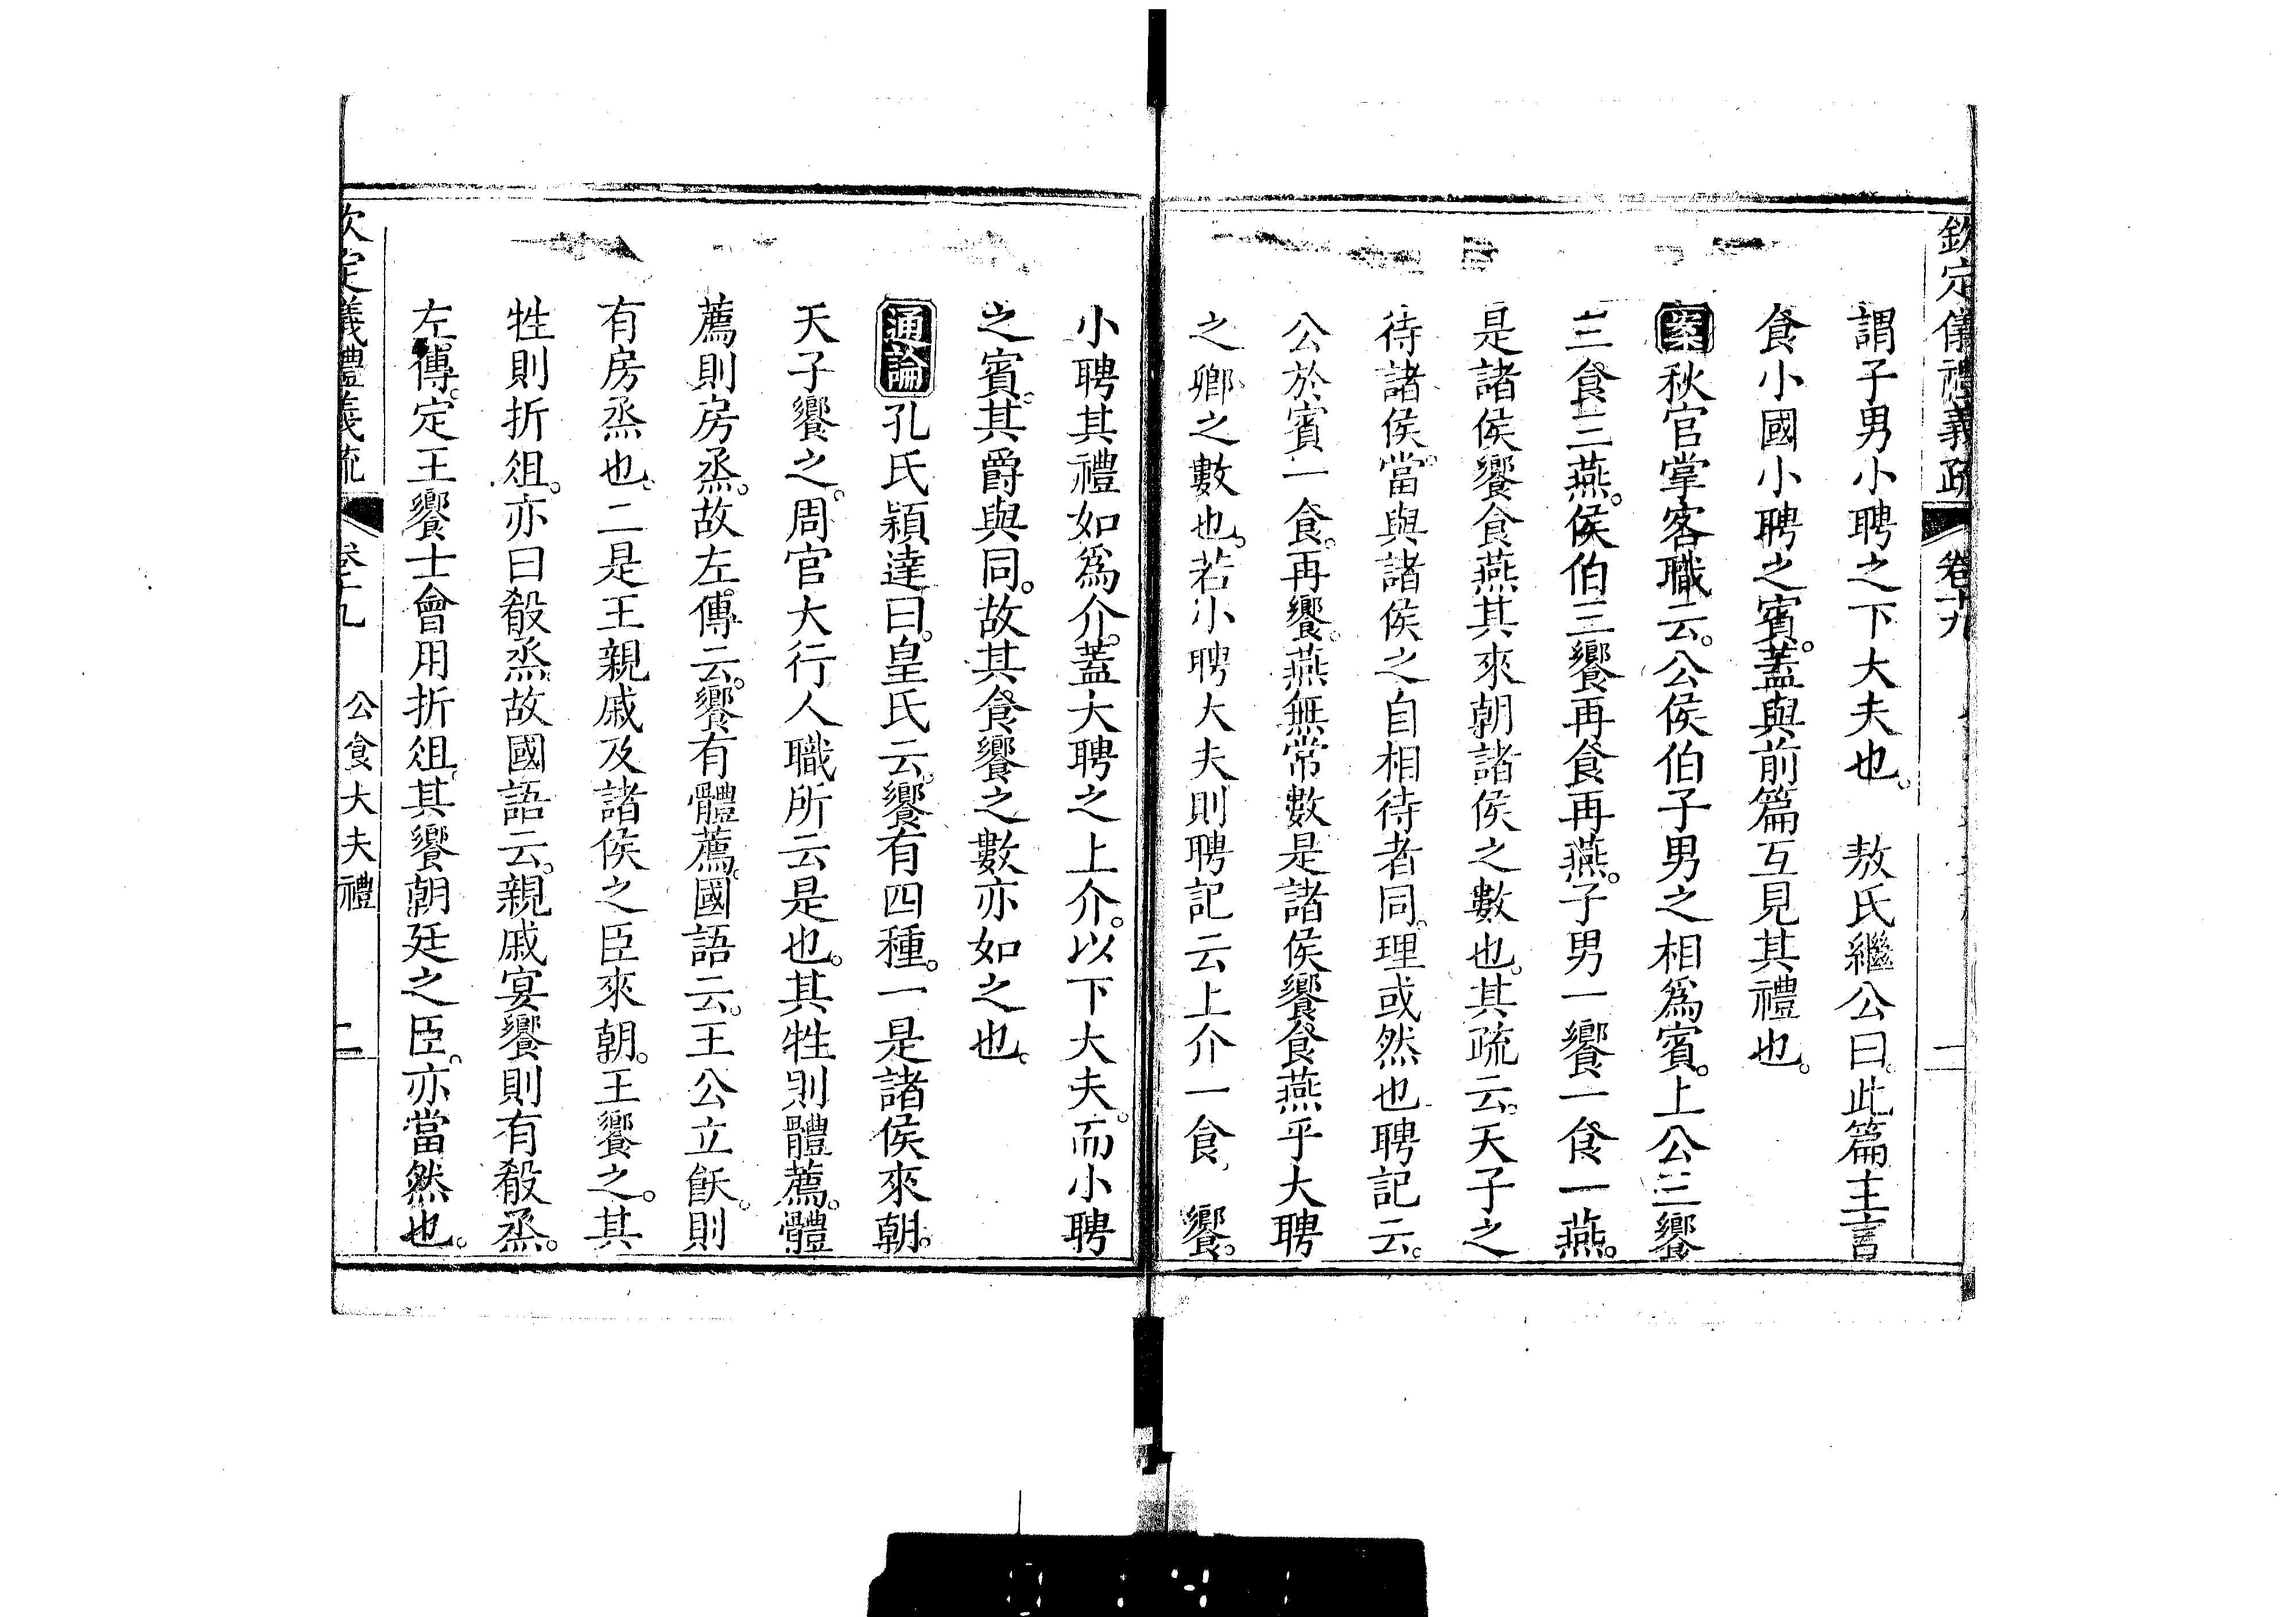 欽定儀禮義疏 卷十九 二
謂子男小聘之下大夫也。 敖氏繼公曰。此篇主言
食小國小聘之賓。蓋與前篇互見其禮也。
案秋官掌客職云。公侯伯子男之相為賓。上公三饗
三食三燕。侯伯三饗再食再燕。子男一饗一食一燕。
是諸侯饗食燕其來朝諸侯之數也。其疏云。天子之
待諸侯。當與諸侯之自相待者同。理或然也聘記云。
公於賓一食。再饗。燕無常數是諸侯饗食燕乎大聘
之卿之數也。若小聘大夫則聘記云上介一食、饗。
小聘其禮如為介。蓋大聘之上介。以下大夫。而小聘
之賓。其爵與同。故其食饗之數亦如之也。
通論孔氏穎達曰。皇氏云。饗有四種。一是諸侯來朝。
天子饗之。周官大行人職所云是也。其牲則體薦。體
薦則房烝。故左傳云。饗有體薦。國語云。王公立飫。則
有房烝也。二是王親戚及諸侯之臣來朝。王饗之。其
牲則折俎。亦曰殽烝故國語云。親戚宴饗則有殽烝。
左傳。定王饗士會用折俎。其饗朝廷之臣。亦當然也。
欽定儀禮義疏 卷十九 公食大夫禮 二